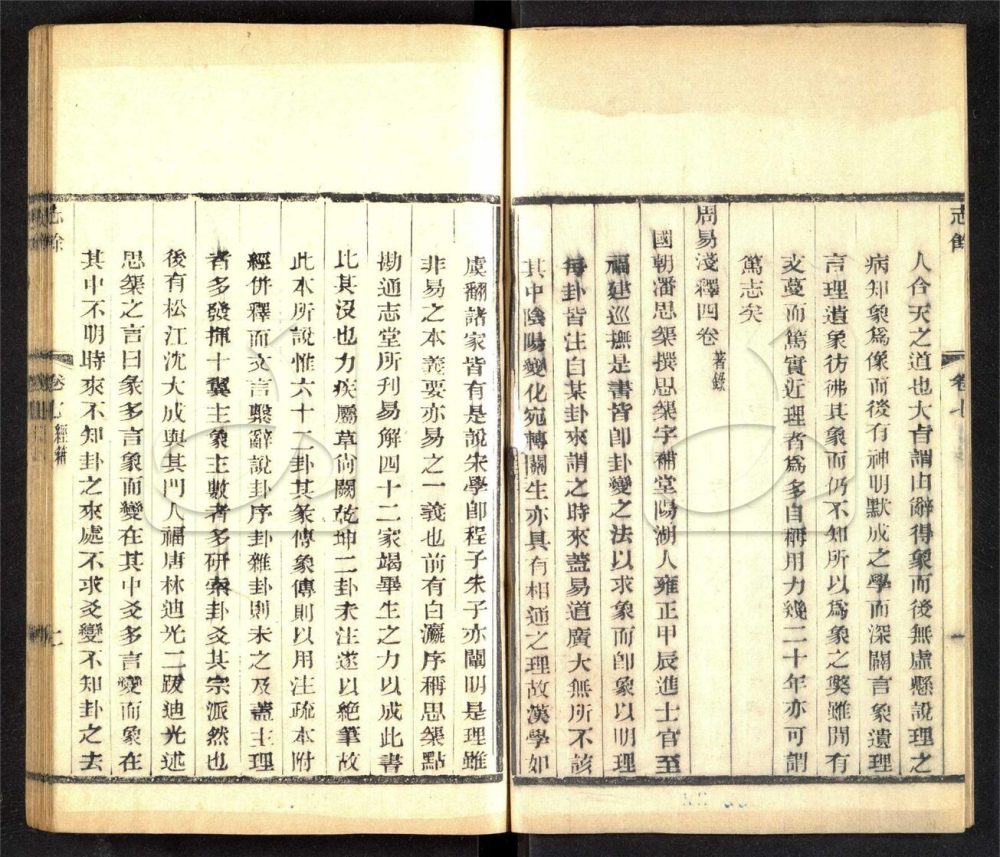 志餘
卷七
人合天之道也大旨謂由辭得象而後無虛懸說理之
病知象爲像而後有神明默成之學而深闢言象遺理
言理遺象彷彿其象而仍不知所以爲象之獘雖間有
支蔓而篤實近理者爲多自稱用力幾二十年亦可謂
篤志矣
周易淺釋四卷 著錄
國朝潘思榘撰思榘字補堂陽湖人雍正甲辰進士官至
福建巡撫是書皆卽卦變之法以求象而卽象以明理
每卦皆注曰某卦來謂之時來蓋易道廣大無所不該
其中陰陽變化宛轉關生亦具有相通之理故漢學如
虞翻諸家皆有是說宋學卽程子朱子亦闡明是理雖
非易之本義要亦易之一義也前有白瀛序稱思榘點
勘通志堂所刊易解四十二家竭畢生之力以成此書
比其沒也力疾屬草尙闕乾坤二卦未注遂以絶筆故
此本所說惟六十二卦其彖傳象傳則以用注疏本附
經併釋而文言繫辭說卦序卦雜卦則未之及蓋主理
者多發揮十翼主象主數者多研索卦爻其宗派然也
後有松江沈大成與其門人福唐林迪光二跋迪光述
思榘之言曰彖多言象而變在其中爻多言變而象在
其中不明時來不知卦之來處不求爻變不知卦之去
志餘
卷七 經籍